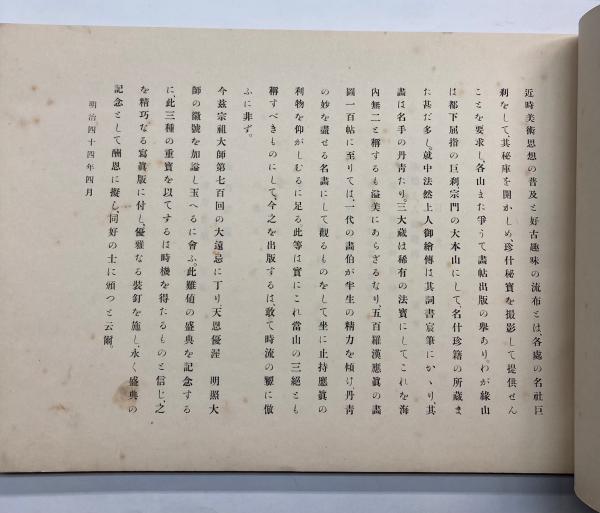 近時美術思想の普及と好古趣味の流布とは、各處の名社巨
刹をして、其秘庫を開かしめ、珍什秘寶を撮影して提供せん
ことを要求し、各山また爭うて畫帖出版の擧あり。わが緣山
は都下屈指の巨刹宗門の大本山にして、名什珍籍の所藏ま
た甚だ多し。就中法然上人御繪傳は其詞書宸筆にかゝり、其
畫は名手の丹靑たり。三大藏は稀有の法寶にしてこれを海
內無二と稱するも溢美にあらざるなり、五百羅漢應眞の畫
圖一百帖に至りては、一代の畫伯が半生の精力を傾け、丹靑
の妙を盡せる名畫にして觀るものをして坐に止持應眞の
利物を仰がしむるに足る此等は實にこれ當山の三絕とも
稱すべきものにして、今之を出版するは、敢て時流の顰に倣
ふに非ず。
今玆宗祖大師第七百回の大遠忌に丁り、天恩優渥 明照大
師の徽號を加謚し玉へるに會ふ。此難値の盛典を記念する
に、此三種の重寶を以てするは時機を得たるものと信じ、之
を精巧なる寫眞版に付し、優雅なる裝釘を施し、永く盛典の
記念として酬恩に擬し、同好の士に頒つと云爾。
明治四十四年四月